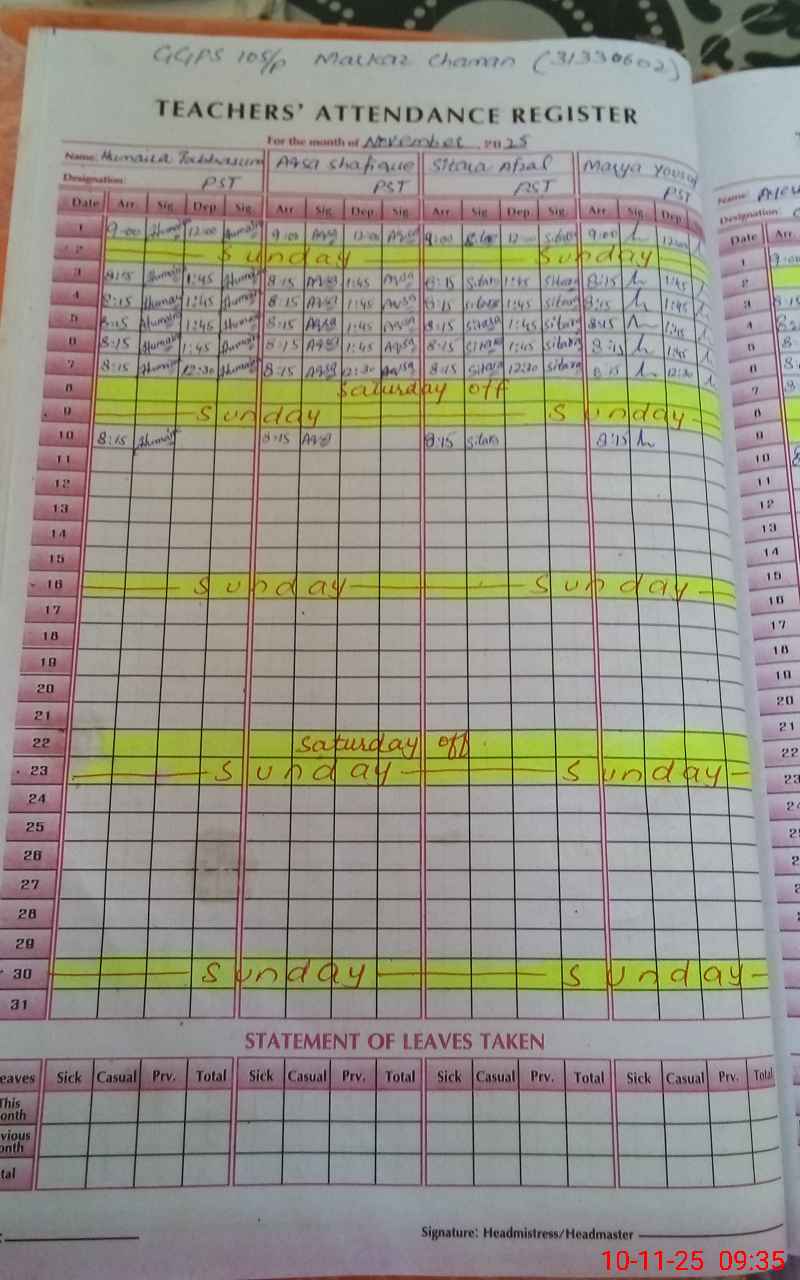 GGPS 105/P Markaz Chaman (31330602)
TEACHERS' ATTENDANCE REGISTER
For the month of November, 2025
Name: Humaira Tabbasum Aqsa Shafique Sitara Afzal Marya Yousaf
Designation: PST PST PST PST
Date Arr. Sig. Dep. Sig. Arr. Sig. Dep. Sig. Arr. Sig. Dep. Sig. Arr. Sig. Dep.
1 9:00 Humaira 12:00 Humaira 9:00 Aqsa 12:00 Aqsa 9:00 Sitara 12:00 Sitara 9:00 12:00
2 Sunday Sunday
3 8:15 Humaira 1:45 Humaira 8:15 Aqsa 1:45 Aqsa 8:15 Sitara 1:45 Sitara 8:15 1:45
4 8:15 Humaira 1:45 Humaira 8:15 Aqsa 1:45 Aqsa 8:15 Sitara 1:45 Sitara 8:15 1:45
5 8:15 Humaira 1:45 Humaira 8:15 Aqsa 1:45 Aqsa 8:15 Sitara 1:45 Sitara 8:15 1:45
6 8:15 Humaira 1:45 Humaira 8:15 Aqsa 1:45 Aqsa 8:15 Sitara 1:45 Sitara 8:15 1:45
7 8:15 Humaira 12:30 Humaira 8:15 Aqsa 12:30 Aqsa 8:15 Sitara 12:30 Sitara 8:15 12:30
8 Saturday off
9 Sunday Sunday
10 8:15 Humaira 8:15 Aqsa 8:15 Sitara 8:15
11
12
13
14
15
16 Sunday Sunday
17
18
19
20
21
22 Saturday off
23 Sunday Sunday
24
25
26
27
28
29
30 Sunday Sunday
31
STATEMENT OF LEAVES TAKEN
eaves Sick Casual Prv. Total Sick Casual Prv. Total Sick Casual Prv. Total Sick Casual Prv. Total
This
onth
vious
onth
tal
Signature: Headmistress/Headmaster
Name:
Designation:
Date Arr.
1 9:00
2
3 8:15
4
5
6
7
8
9
10
11
12
13
14
15
16
17
18
19
20
21
22
23
10-11-25 09:35